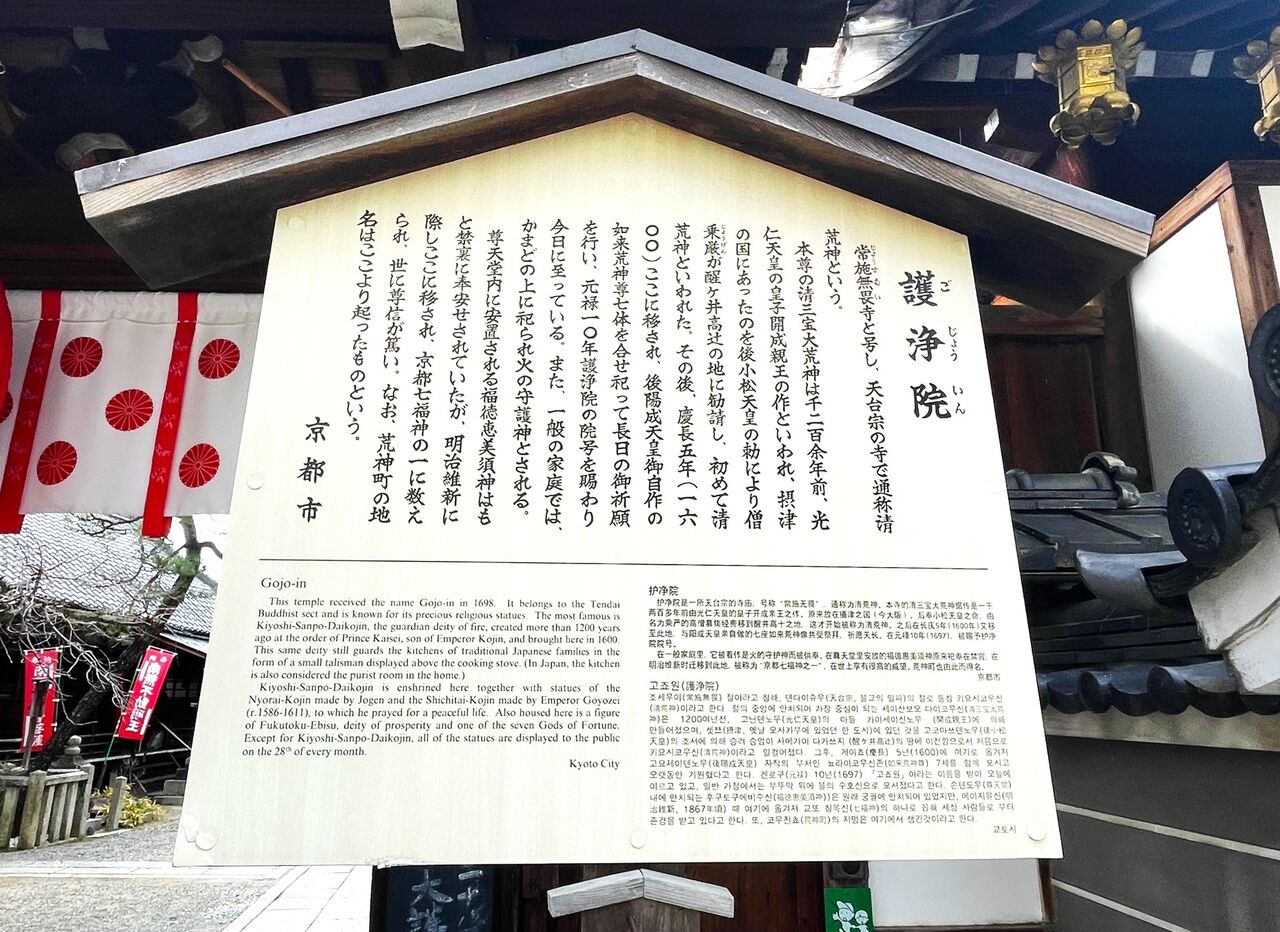 護浄院
ご じょう いん
常施無畏寺と号し、天台宗の寺で通称清
じょうせむい
荒神という。
本尊の清三宝大荒神は千二百余年前、光
仁天皇の皇子開成親王の作といわれ、摂津
の国にあったのを後小松天皇の勅により僧
乗厳が醒ケ井高辻の地に勧請し、初めて清
じょうげん
荒神といわれた。その後、慶長五年（一六
〇〇）ここに移され、後陽成天皇御自作の
如来荒神尊七体を合せ祀って長日の御祈願
を行い、元禄一〇年護浄院の院号を賜わり
今日に至っている。また、一般の家庭では、
かまどの上に祀られ火の守護神とされる。
尊天堂内に安置される福徳恵美須神はも
と禁裏に奉安せされていたが、明治維新に
際しここに移され、京都七福神の一に数え
られ、世に尊信が篤い。なお、荒神町の地
名はここより起ったものという。
京都市
Gojo-in
This temple received the name Gojo-in in 1698. It belongs to the Tendai
Buddhist sect and is known for its precious religious statues. The most famous is
Kiyoshi-Sanpo-Daikojin, the guardian deity of fire, created more than 1200 years
ago at the order of Prince Kaisei, son of Emperor Kojin, and brought here in 1600.
This same deity still guards the kitchens of traditional Japanese families in the
form of a small talisman displayed above the cooking stove. (In Japan, the kitchen
is also considered the purist room in the home.)
Kiyoshi-Sanpo-Daikojin is enshrined here together with statues of the
Nyorai-Kojin made by Jogen and the Shichitai-Kojin made by Emperor Goyozei
(r.1586-1611), to which he prayed for a peaceful life. Also housed here is a figure
of Fukutoku-Ebisu, deity of prosperity and one of the seven Gods of Fortune.
Except for Kiyoshi-Sanpo-Daikojin, all of the statues are displayed to the public
on the 28th of every month.
Kyoto City
护净院
护净院是一所天台宗的寺庙，号称“常施无畏”，通称为清荒神。本寺的清三宝大荒神据传是一千
两百多年前由光仁天皇的皇子开成亲王之作。原来放在摄津之国（今大阪），后奉小松天皇之命，由
名为乘严的高僧募集经费移到醒井高十之地，这才开始被称为清荒神。之后在长庆5年(1600年)又移
至此地，与阳成天皇亲自做的七座如来荒神像共受祭拜，祈愿天长，在元禄10年(1697)，被赐予护净
院院号。
在一般家庭里，它被看作是火的守护神而被供奉。在尊天堂里安放的福德惠美须神原来祀奉在禁宫，在
明治维新时迁移到此地，被称为“京都七福神之一”，在世上享有很高的威望。荒神町也由此而得名。
京都市
고죠원(護浄院)
조세무이(常施無畏) 절이라고 칭해, 덴다이슈우(天台宗, 불교의 일파)의 절로 통칭 키요시코우신
(清荒神)이라고 한다. 절의 중앙에 안치되어 가장 중심이 되는 세이산보오 다이코우신(清三宝大荒
神)은 1200여년전, 고닌덴노우(光仁天皇)의 아들 카이세이신노우 (開成親王)에 의해
만들어졌으며, 셋쯔(摂津, 옛날 오사카부에 있었던 한 도시)에 있던 것을 고코마쯔덴노우(後小松
天皇)의 조서에 의해 승려 승엄이 사메가이 다카쯔지 (醒ケ井高辻)의 땅에 이전함으로서 처음으로
키요시코우신(清荒神)이라고 일컬어졌다. 그후, 게이쵸(慶長) 5년(1600)에 여기로 옮겨져
고요제이덴노우(後陽成天皇) 자작의 부처인 뇨라이코우신존(如来荒神尊) 7체를 함께 모시고
오랫동안 기원했다고 한다. 겐로쿠(元禄) 10년(1697) 「고죠원」이라는 이름을 받아 오늘에
이르고 있고, 일반 가정에서는 부뚜막 위에 불의 수호신으로 모셔졌다고 한다. 손텐도우(尊天堂)
내에 안치되는 후쿠토쿠에비수신(福徳恵美須神)은 원래 궁궐에 안치되어 있었지만, 메이지유신(明
治維新, 1867年頃) 때 여기에 옮겨져 교또 칠복신(七福神)의 하나로 꼽혀 세상 사람들로 부터
존경을 받고 있다고 한다. 또, 코우진쵸(荒神町)의 지명은 여기에서 생긴것이라고 한다.
교토시